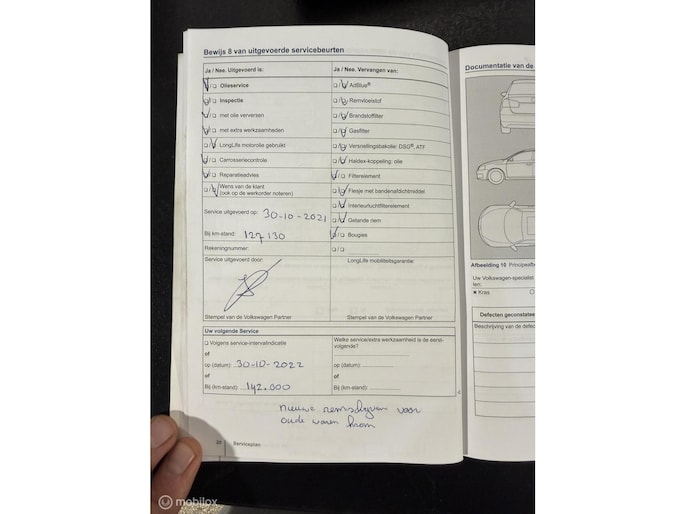 Bewijs 8 van uitgevoerde servicebeurten
Ja / Nee. Uitgevoerd is:
Olieservice
Inspectie
met olie verversen
met extra werkzaamheden
LongLife motorolie gebruikt
Carrosseriecontrole
Reparatieadvies
Wens van de klant
(ook op de werkorder noteren)
Service uitgevoerd op: 30-10-2021
Bij km-stand: 127130
Rekeningnummer:
Service uitgevoerd door:
Stempel van de Volkswagen Partner
Ja / Nee. Vervangen van:
AdBlue®
Remvloeistof
Brandstoffilter
Gasfilter
Versnellingsbakolie: DSG®, ATF
Haldex-koppeling: olie
Filterelement
Flesje met bandenafdichtmiddel
Interieurluchtfilterelement
Getande riem
Bougies
LongLife mobiliteitsgarantie:
Stempel van de Volkswagen Partner
Uw volgende Service
Volgens service-intervalindicatie
of
op (datum): 30-10-2022
of
Bij (km-stand): 142.000
Welke service/extra werkzaamheid is de eerst-
volgende?
op (datum):
of
Bij (km-stand):
nieuwe remschijven voor
oude waren krom
Serviceplan
Documentatie van de
Afbeelding 10
Uw Volkswagen-specialist
ten:
Kras
Defecten geconstatee
Beschrijving van de defec
mobilox